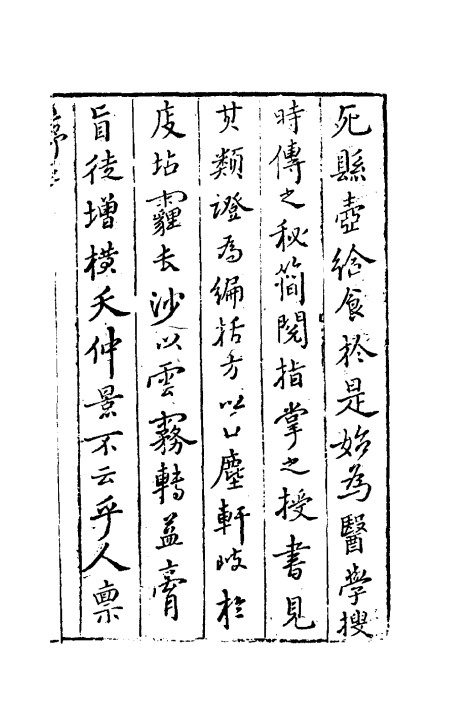 死縣壺給食於是始為醫學搜
時傳之秘簡閱指掌之授書見
其類證為編括方以公塵軒岐於
皮坫霾長沙以雲霧轉益膏
盲徒增橫夭仲景不云乎人禀
序